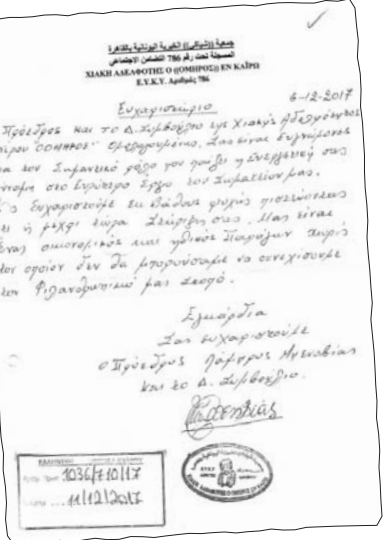 جمعية ((شياقى)) الخيرية اليونانية بالقاهرة
المسجلة تحت رقم 786 التضامن الاجتماعي
ΧΙΑΚΗ ΑΔΕΛΦΟΤΗΣ Ο ((ΟΜΗΡΟΣ)) ΕΝ ΚΑΪΡΩ
Ε.Υ.Κ.Υ. Αριθμός 786
Ευχαριστήριο
6-12-2017
Πρόεδρος και το Δ. Συμβούλιο της Χιακής Αδελφότητος
"ΟΜΗΡΟΣ" Σας είναι ευγνώμονες
για τον Σημαντικό ρόλο που παίζει η Ευεργετική σας
στο Ευρύτερο Έργο του Σωματείου μας.
Σας ευχαριστούμε εκ βάθους ψυχής
μέχρι τώρα Στήριξη σας. Μας είναι
ένας οικονομικός και ηθικός Παράγων χωρίς
τον οποίον δεν θα μπορούσαμε να συνεχίσουμε
τον Φιλανθρωπικό μας σκοπό.
Εγκάρδια
Σας ευχαριστούμε
ο Πρόεδρος Λάμπρος
και το Δ. Συμβούλιο.
1036/710/17
11/12/2017